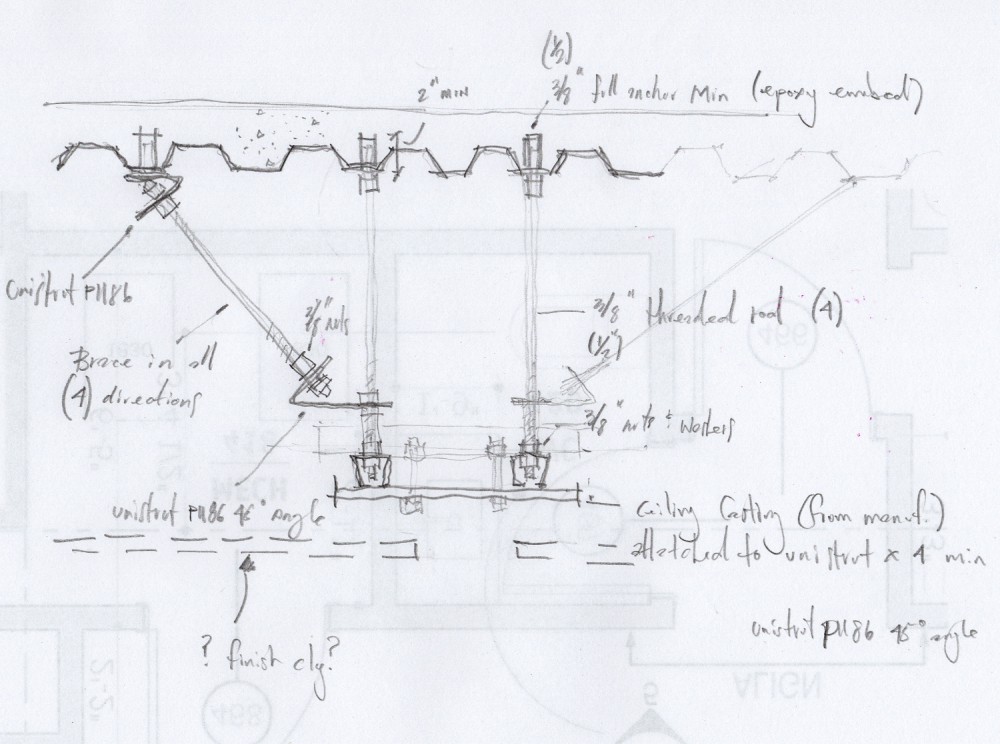 (1/2)
2" MIN
3/8" full anchor Min (epoxy embed)
unistrut P1186
3/8 nuts
3/8" threaded rod (4)
(1/2")
Brace in all
(4) directions
3/8" nuts & washers
unistrut P1186 45° angle
ceiling casting (from manuf.)
attached to unistrut x 4 min
? finish clg?
unistrut P1186 45° angle
466
1'-6"
418
MECH
468
2'-2"
ALIGN
5